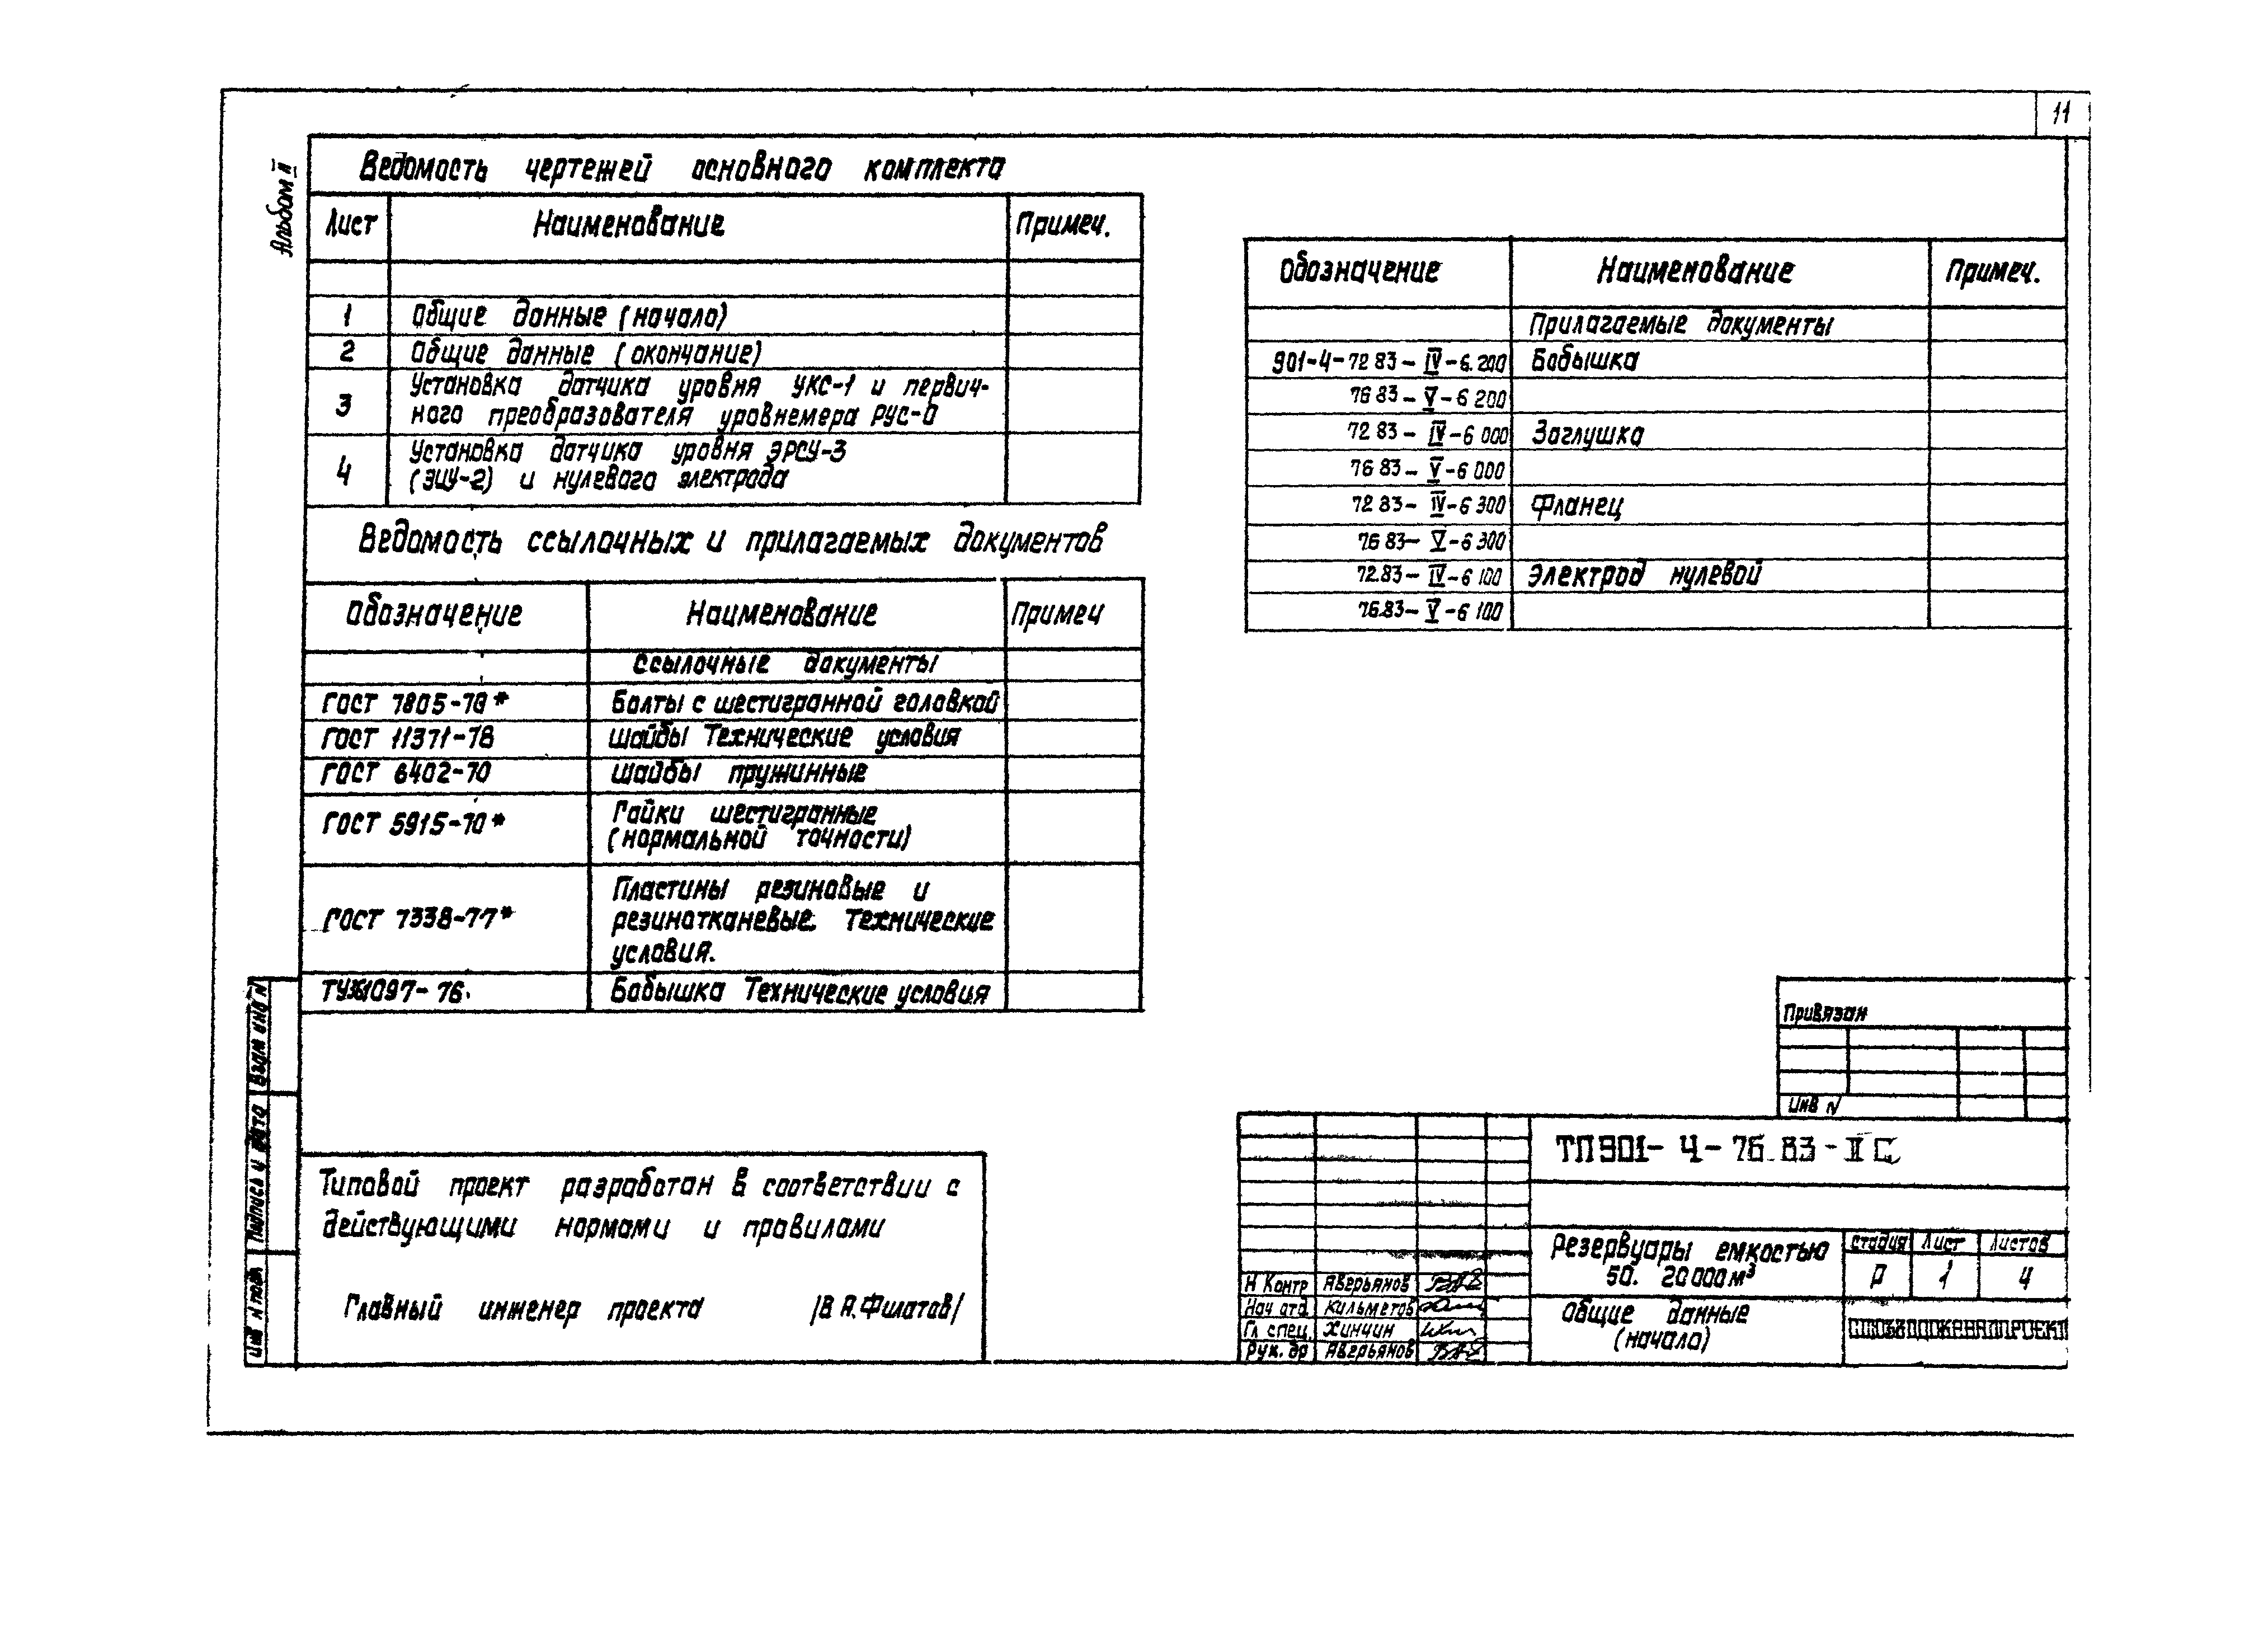 11
Альбом II
Ведомость чертежей основного комплекта
Лист Наименование Примеч.
1 Общие данные (начало)
2 Общие данные (окончание)
3 Установка датчика уровня УКС-1 и первич-
ного преобразователя уровнемера РУС-0
4 Установка датчика уровня ЭРСУ-3
(ЭИУ-2) и нулевого электрода
Ведомость ссылочных и прилагаемых документов
Обозначение Наименование Примеч
Ссылочные документы
ГОСТ 7805-70* Болты с шестигранной головкой
ГОСТ 11371-78 Шайбы Технические условия
ГОСТ 6402-70 Шайбы пружинные
ГОСТ 5915-70* Гайки шестигранные
(нормальной точности)
ГОСТ 7338-77* Пластины резиновые и
резинотканевые. Технические
условия.
1097-76. Бобышка Технические условия
Типовой проект разработан в соответствии с
действующими нормами и правилами
Главный инженер проекта /В.А.Филатов/
Взам инв N
Подпись и дата
Инв N подл
Обозначение Наименование Примеч.
Прилагаемые документы
901-4-72 83-IV-6.200 Бобышка
76 83-V-6 200
72 83-IV-6 000 Заглушка
76 83-V-6 000
72 83-IV-6 300 Фланец
76 83-V-6 300
72.83-IV-6 100 Электрод нулевой
76.83-V-6 100
Привязан
Инв N
ТП901-4-76.83-II С
Резервуары емкостью
50. 20000м³
Стадия Лист Листов
Р 1 4
Н Контр Аверьянов
Нач отд. Кильметов
Гл спец. Хинчин
Рук. др Аверьянов
Общие данные
(начало)
СОЮЗВОДОКАНАЛПРОЕКТ